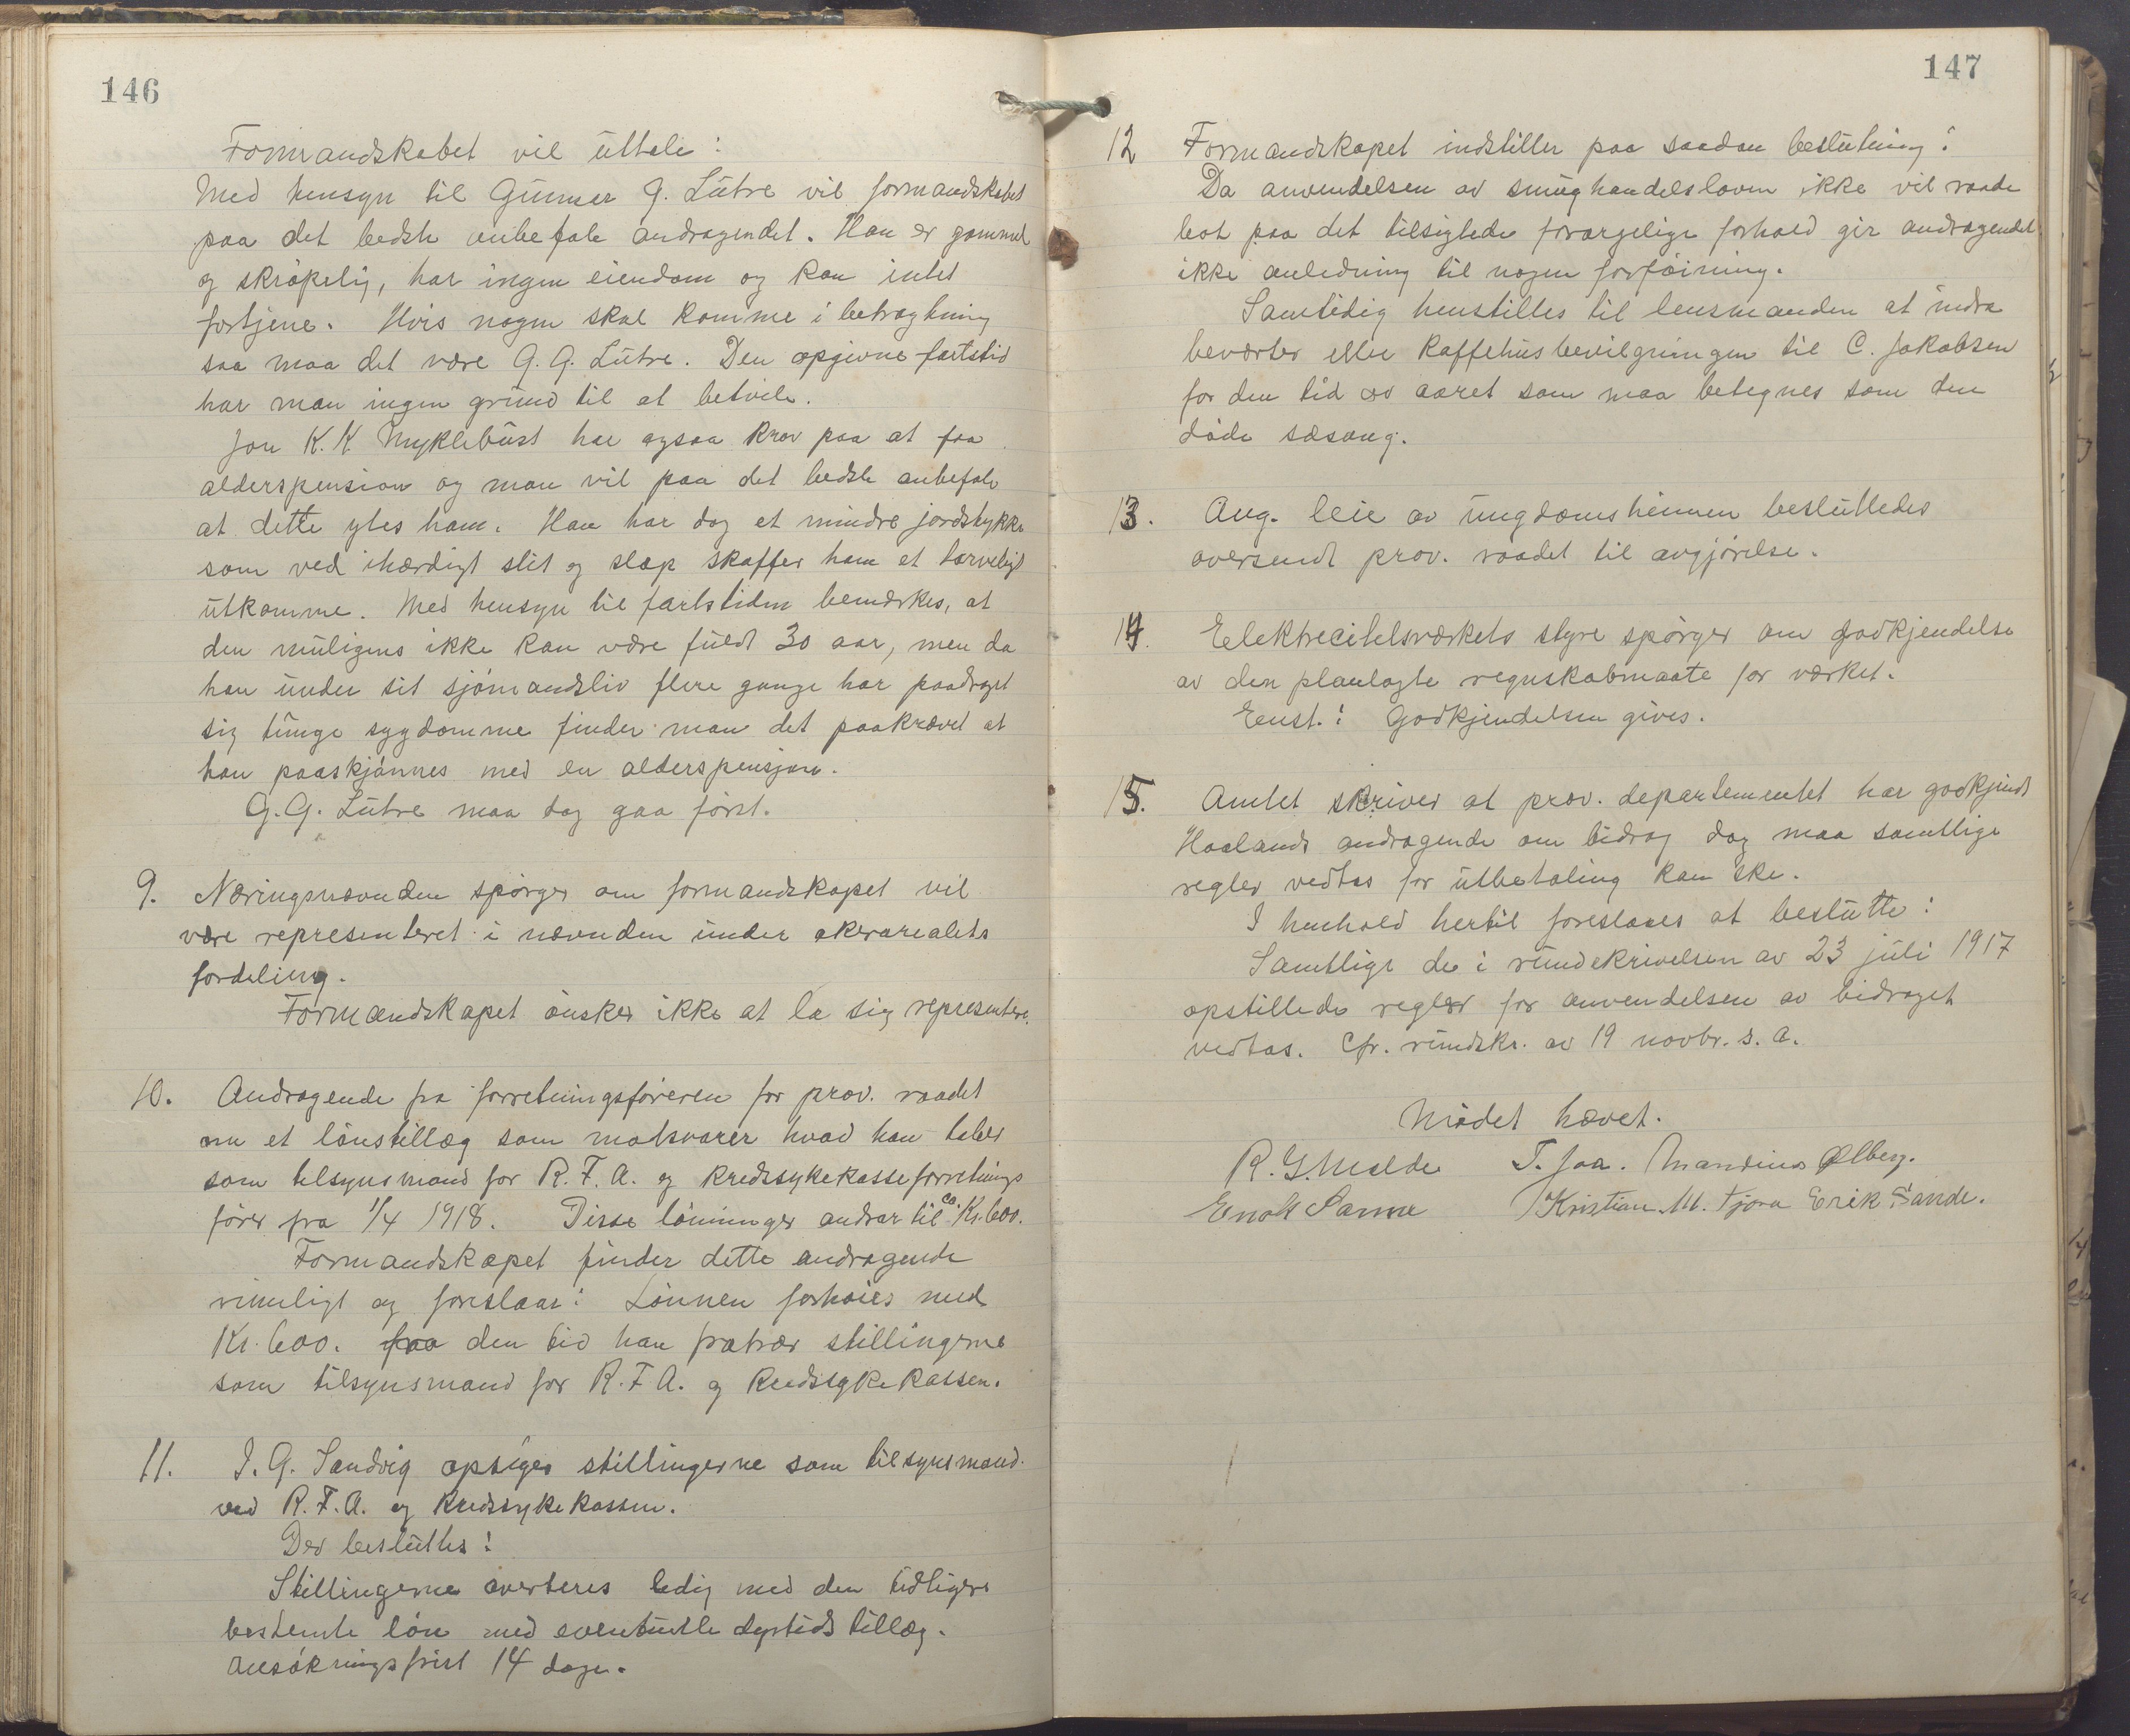 146
Formandskabet vil uttale:
Med hensyn til Gunnar G. Lutre vil formandskabet
paa det bedste anbefale andragendet. Han er gammel
og skrøpelig, har ingen eiendom og kan intet
fortjene. Hvis nogen skal komme i betragtning
saa maa det være G. G. Lutre. Den opgivne fartstid
har man ingen grund til at betvile.
Jon K. K Myklebust har ogsaa krav paa at faa
alderspension og man vil paa det bedste anbefale
at dette ytes ham. Han har dog et mindre jordstykke
som ved ihærdigt slit og slæp skaffer ham et tarveligt
utkomme. Med hensyn til fartstiden bemerkes, at
den muligens ikke kan være fuldt 30 aar, men da
han under sit sjømandsliv flere gange har paadraget
sig tunge sygdomme finder man det paakrævet at
han paaskjønnes med en alderspensjon.
G. G. Lutre maa dog gaa først.
9. Næringsnævnden spørger om formandskapet vil
være representeret i nævnden under akerarealets
fordeling.
Formandskapet ønsker ikke at la sig representere.
10. Andragende fra forretningsføreren for prov. raadet
om et lønstillæg som motsvarer hvad han taber
som tilsynsmand for R. F. A. og kredssykekasseforretnings
fører fra 1/4 1918. Disse lønninger andrar til ca. Kr. 600.
Formandskapet finder dette andragende
rimeligt og foreslaar: Lønnen forhøies med
Kr. 600. fra den tid han fratrær stillingerne
som tilsynsmand for R. F A. og kredssykekassen.
11. I. G. Sandvig opsiger stillingerne som tilsynsmand
ved R. F. A. og kredssykekassen.
Der besluttes:
Stillingerne averteres ledig med den tidligere
bestemte løn med eventuelle dyrtidstillæg.
Ansøkningsfrist 14 dage.
147
12 Formandskapet indstiller paa saadan beslutning:
Da anvendelsen av smughandelsloven ikke vil raade
bot paa det tilsigtede forargelige forhold gir andragendet
ikke anledning til nogen forføining.
Samtidig henstilles til lensmanden at indra
beverter eller kaffehusbevilgningen til C. Jakobsen
for den tid av aaret som maa betegnes som den
døde sæsong.
13. Ang. leie av ungdomsheimen besluttedes
oversendt prov. raadet til avgjørelse.
14. Elektrecitetsværkets styre spørger om godkjendelse
av den planlagte regnskabmaate for værket.
Enst.: Godkjendelsen gives.
15. Amtet skriver at prov. departementet har godkjendt
Haalands andragende om bidrag dog maa samtlige
regler vedtas før utbetaling kan ske.
I henhold hertil foreslaaes at beslutte:
Samtlige de i rundskrivelsen av 23 juli 1917
opstillede regler for anvendelsen av bidraget
vedtas. Cfr. rundskr. av 19 novbr. s. a.
Mødet hævet.
R. G. Melde T. Joa. Mandius Ølberg.
Enok Sanne Kristian M. Tjora Erik Sande.